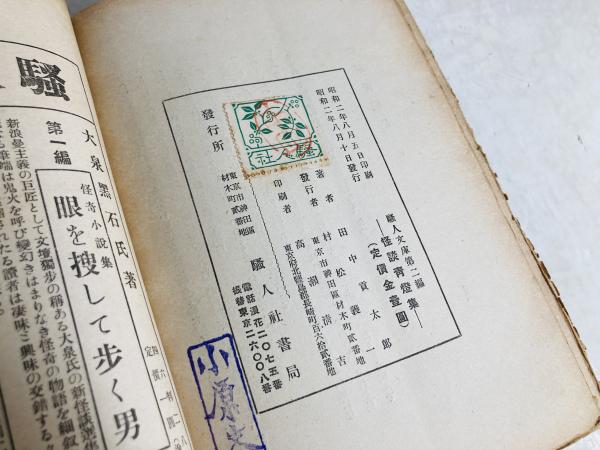 昭和二年八月五日印刷
昭和二年八月十日發行
騷人文庫第二編
―怪談靑燈集―
(定價金壹圓)
著者 田中貢太郎
發行者 村松義一
東京市神田區材木町貳番地
印刷者 高瀨淸吉
東京府北豐島郡長崎町百六拾貳番地
發行所
東京市神田區
材木町貳番地
騷人社書局
電話浪花二〇七五番
振替東京二六〇〇八番
騷人社
小原
騷
第一編
大泉黑石氏著
怪奇小說集
眼を搜して步く男
新浪曼主義の巨匠として文壇獨步の稱ある大泉氏の新怪談選集
筆端は鬼火を呼び變幻きはまりなき怪奇の物語を細叙
されたる讀者は凄味と興味の交錯する